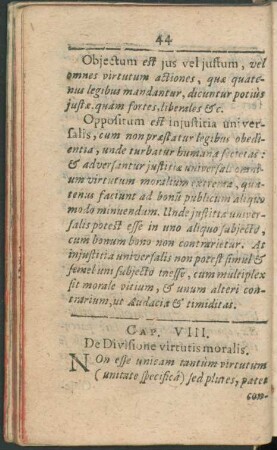 44
Objectum est jus vel justum, vel
omnes virtutum actiones, quæ quate-
nus legibus mandantur, dicuntur potius
justæ, quám fortes, liberales &c.
Oppositum est injustitia univer-
salis, cum non præstatur legibus obedi-
entia, unde turbatur humana societas:
& adversantur justitiæ universali omni-
um virtutum moralium extrema, qua-
tenus faciunt ad bonũ publicum aliquo
modo minuendam. Unde justitia univer-
salis potest esse in uno aliquo subjecto,
cum bonum bono non contrarietur. At
injustitia universalis non potest simul &
semel uni subjecto inesse, cum multiplex
sit morale vitium, & unum alteri con-
trarium, ut Audacia & timiditas.
CAP. VIII.
De Divisione virtutis moralis.
NOn esse unicam tantùm virtutum
(unitate specificâ) sed plures, patet
con-